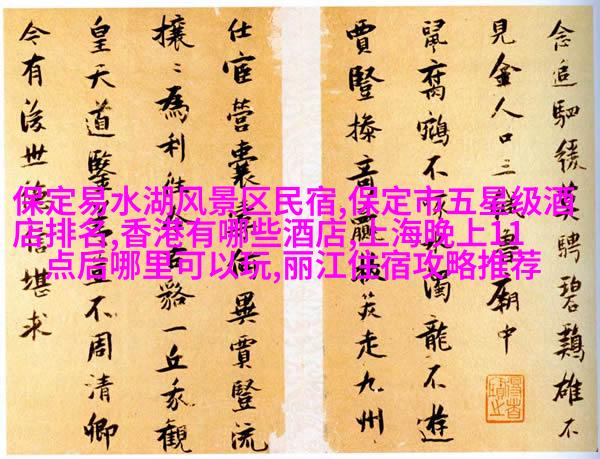 念追駟緩莫騁碧鷄雄不
見金人口三緘魯廟中
鼠腐鵷不濁龍不遊
賈豎操贏走九州
仕宦營囊何異賈豎流
攘〻為利谿一丘我觀
皇天道鑒豈不周清卿
令有後世堪求
保定易水湖风景区民宿,保定市五星级酒
店排名,香港有哪些酒店,上海晚上11
点后哪里可以玩,丽江住宿攻略推荐